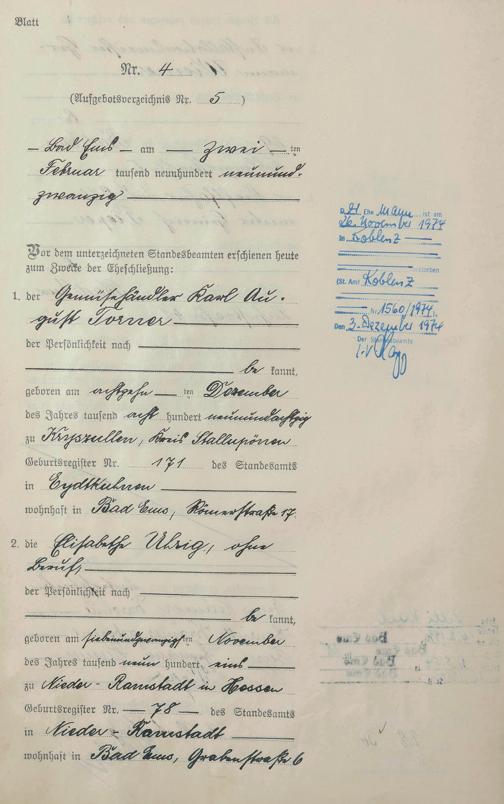 Blatt
Nr. 4
(Aufgebotsverzeichnis Nr. 5 )
Bad Ems am zwei ten
Februar tausend neunhundert neunund-
zwanzig
Vor dem unterzeichneten Standesbeamten erschienen heute
zum Zwecke der Eheschließung:
1. der Gemüsehändler Karl Au-
gust Torner
der Persönlichkeit nach
be kannt,
geboren am achtzehn ten Dezember
des Jahres tausend acht hundert neunundachtzig
zu Kryszullen, Kreis Stallupönen
Geburtsregister Nr. 171 des Standesamts
in Eydtkuhnen
wohnhaft in Bad Ems, Römerstraße 17.
2. die Elisabethe Uhrig, ohne
Beruf,
der Persönlichkeit nach
be kannt,
geboren am siebenundzwanzigsten November
des Jahres tausend neun hundert eins
zu Nieder-Ramstadt in Hessen
Geburtsregister Nr. 78 des Standesamts
in Nieder-Ramstadt
wohnhaft in Bad Ems, Grabenstraße 6
D. Ehe Mann ist am
26. November 1974
in Koblenz
(St. Amt Koblenz
Nr. 1560/1974)
Den 3. Dezember 1974
Der Standesbeamte
I.V.
Bad Ems
Bad Ems
Bad Ems